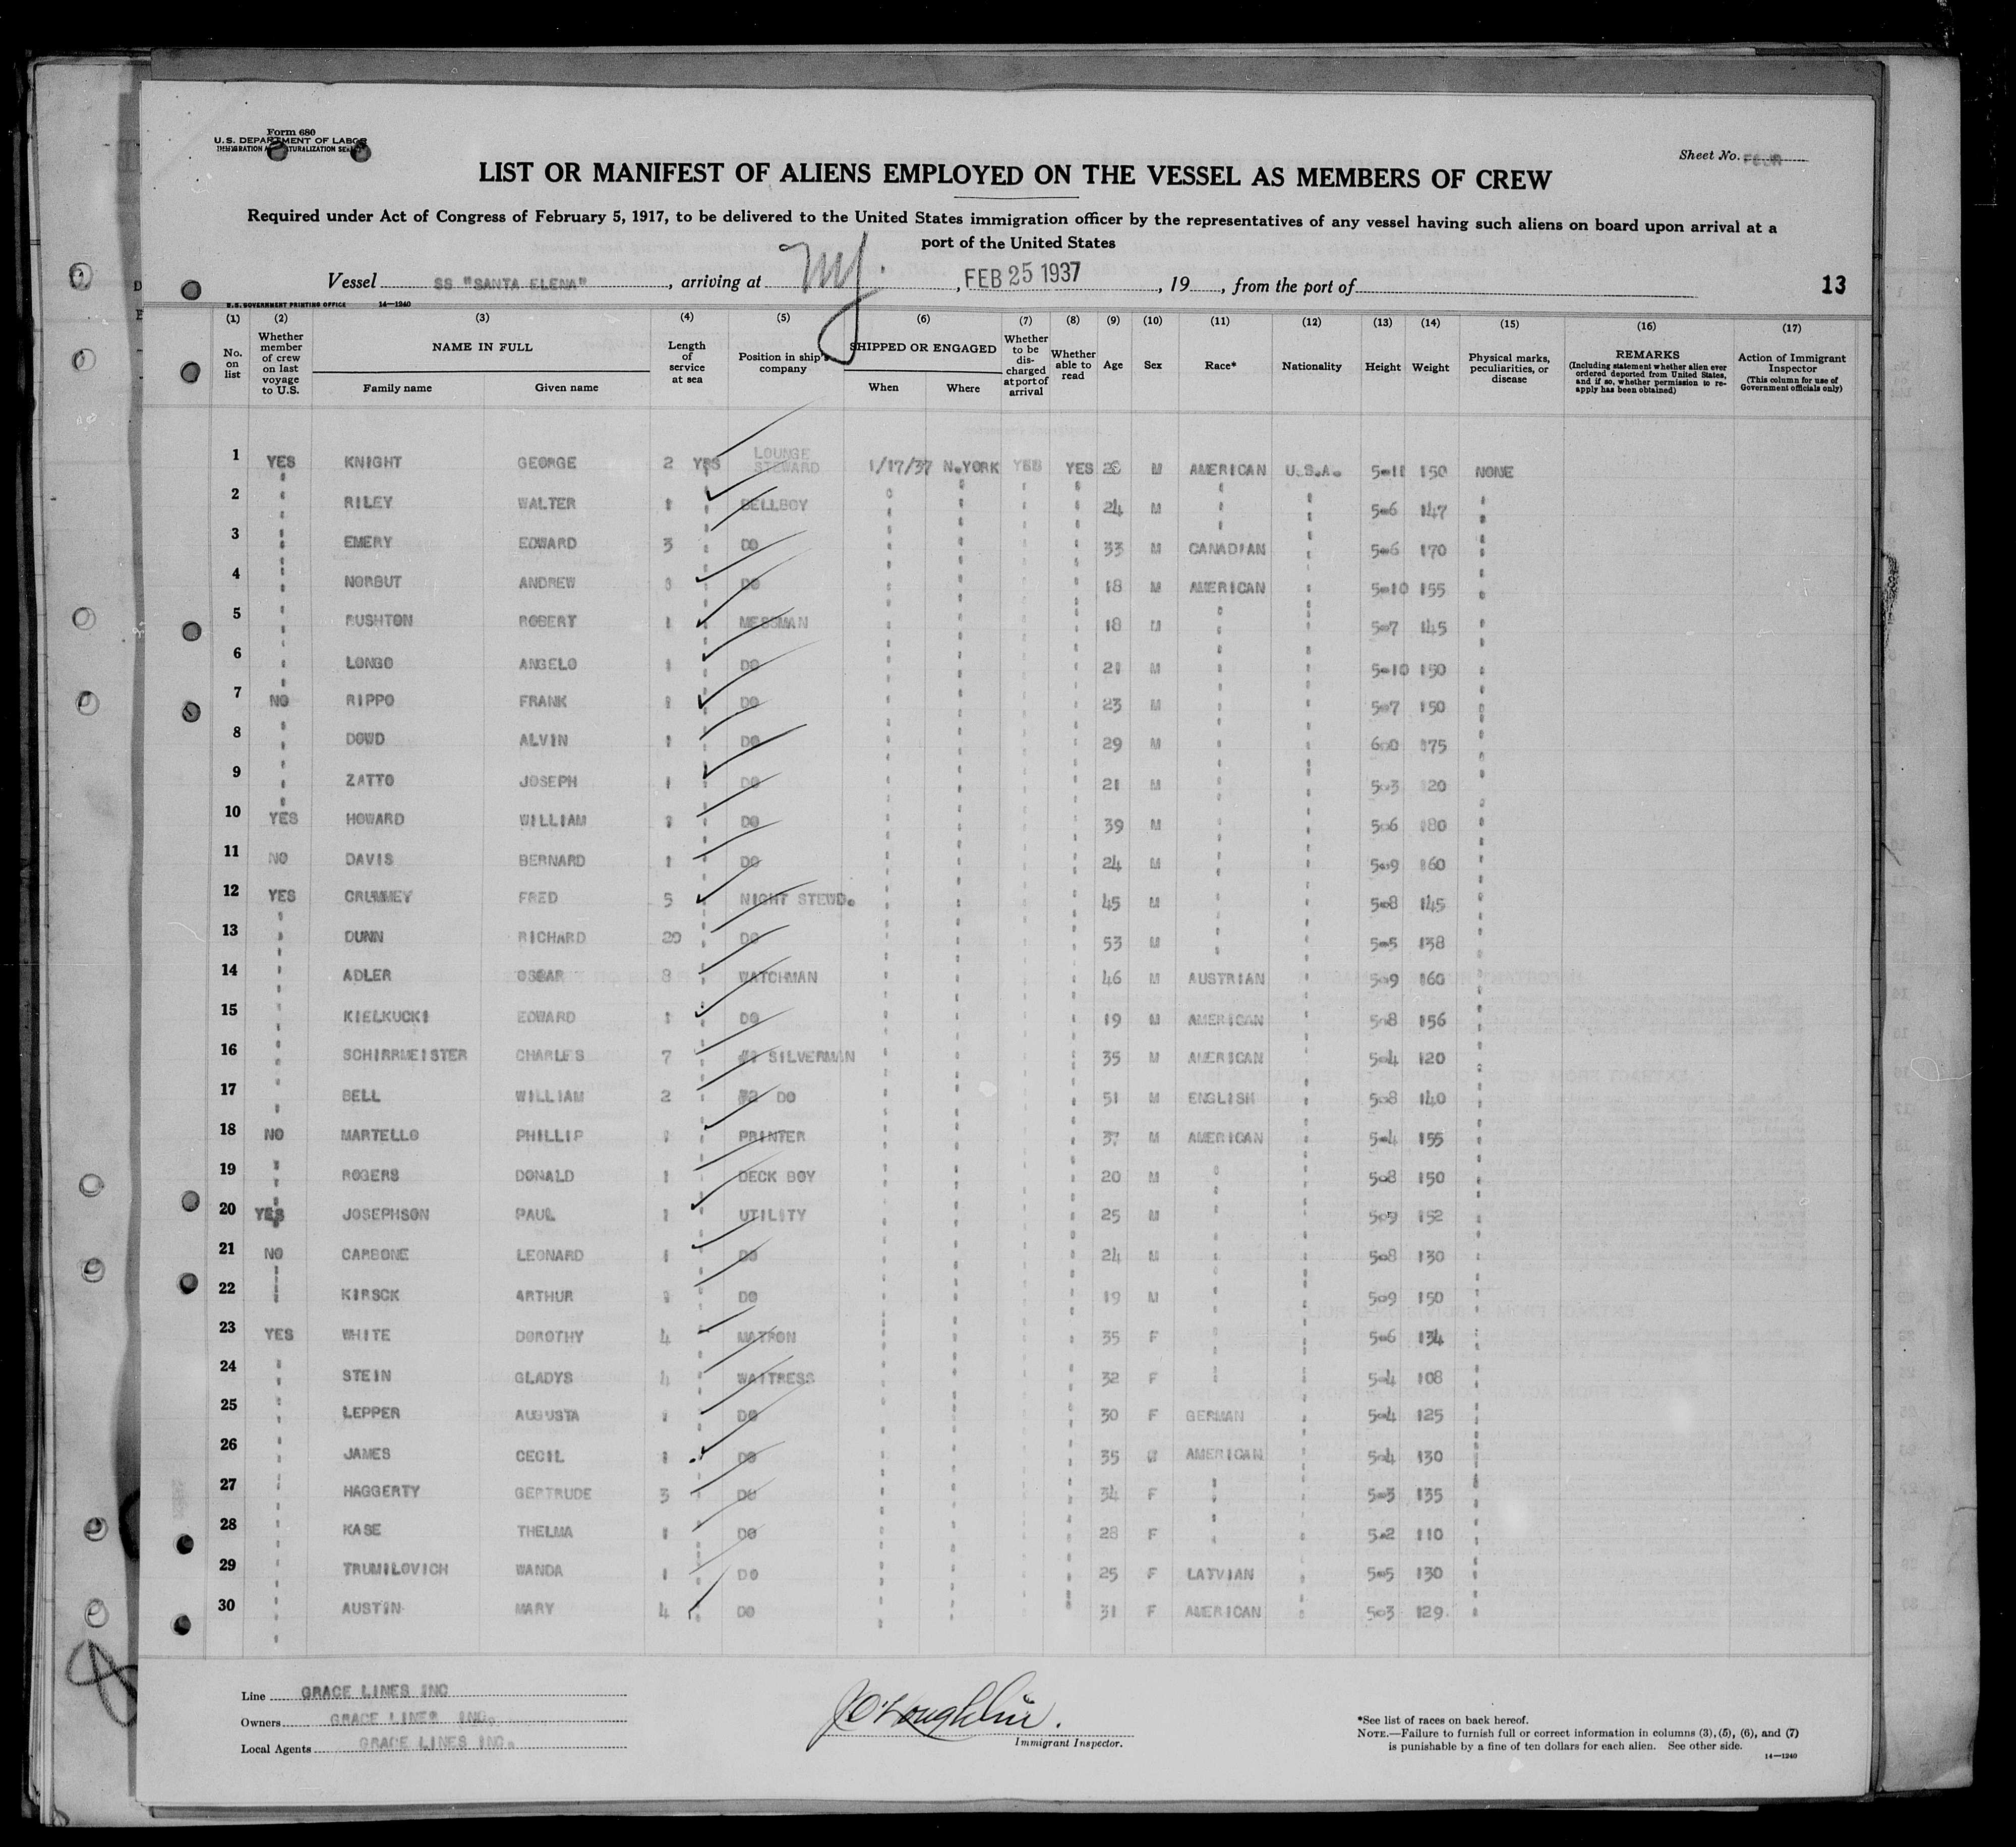 Form 680
U.S. DEPARTMENT OF LABOR
IMMIGRATION NATURALIZATION
Sheet No. FOUR
LIST OR MANIFEST OF ALIENS EMPLOYED ON THE VESSEL AS MEMBERS OF CREW
Required under Act of Congress of February 5, 1917, to be delivered to the United States immigration officer by the representatives of any vessel having such aliens on board upon arrival at a
port of the United States
Vessel SS "SANTA ELENA", arriving at NY., FEB 25 1937, 19, from the port of 13
U.S. GOVERNMENT PRINTING OFFICE 14—1240
(1) (2) (3) (4) (5) (6) (7) (8) (9) (10) (11) (12) (13) (14) (15) (16) (17)
No. on list
Whether member of crew on last voyage to U.S.
NAME IN FULL
Family name Given name
Length of service at sea
Position in ship's company
SHIPPED OR ENGAGED
When Where
Whether to be discharged at port of arrival
Whether able to read
Age Sex Race* Nationality Height Weight
Physical marks, peculiarities, or disease
REMARKS
(Including statement whether alien ever ordered deported from United States, and if so, whether permission to re-apply has been obtained)
Action of Immigrant Inspector
(This column for use of Government officials only)
1 YES KNIGHT GEORGE 2 YRS LOUNGE STEWARD 1/17/37 N.YORK YES YES 28 M AMERICAN U.S.A. 5-11 150 NONE
2 " RILEY WALTER 1 " BELLBOY " " " " 24 M " " 5-6 147 "
3 " EMERY EDWARD 3 " DO " " " " 33 M CANADIAN " 5-6 170 "
4 " NORBUT ANDREW " DO " " " " 18 M AMERICAN " 5-10 155 "
5 " RUSHTON ROBERT 1 " MESSMAN " " " " 18 M " " 5-7 145 "
6 " LONGO ANGELO 1 " DO " " " " 21 M " " 5-10 150 "
7 NO RIPPO FRANK 1 " DO " " " " 23 M " " 5-7 150 "
8 " DOWD ALVIN 1 " DO " " " " 29 M " " 6-0 175 "
9 " ZATTO JOSEPH 1 " DO " " " " 21 M " " 5-3 120 "
10 YES HOWARD WILLIAM 1 " DO " " " " 39 M " " 5-6 180 "
11 NO DAVIS BERNARD 1 " DO " " " " 24 M " " 5-9 160 "
12 YES CRUMMEY FRED 5 " NIGHT STEWD. " " " " 45 M " " 5-8 145 "
13 " DUNN RICHARD 20 " DO " " " " 53 M " " 5-5 138 "
14 " ADLER OSCAR 8 " WATCHMAN " " " " 46 M AUSTRIAN " 5-9 160 "
15 " KIELKUCKI EDWARD 1 " DO " " " " 19 M AMERICAN " 5-8 156 "
16 " SCHIRRMEISTER CHARLES 7 " #1 SILVERMAN " " " " 35 M AMERICAN " 5-4 120 "
17 " BELL WILLIAM 2 " #2 DO " " " " 51 M ENGLISH " 5-8 140 "
18 NO MARTELLO PHILLIP 1 " PRINTER " " " " 37 M AMERICAN " 5-4 155 "
19 " ROGERS DONALD 1 " DECK BOY " " " " 20 M " " 5-8 150 "
20 YES JOSEPHSON PAUL 1 " UTILITY " " " " 25 M " " 5-9 152 "
21 NO CARBONE LEONARD 1 " DO " " " " 24 M " " 5-8 130 "
22 " KIRSCK ARTHUR 1 " DO " " " " 19 M " " 5-9 150 "
23 YES WHITE DOROTHY 4 " MATRON " " " " 35 F " " 5-6 134 "
24 " STEIN GLADYS 4 " WAITRESS " " " " 32 F " " 5-4 108 "
25 " LEPPER AUGUSTA 1 " DO " " " " 30 F GERMAN " 5-4 125 "
26 " JAMES CECIL 1 " DO " " " " 35 AMERICAN " 5-4 130 "
27 " HAGGERTY GERTRUDE 3 " DO " " " " 34 F " " 5-3 135 "
28 " KASE THELMA 1 " DO " " " " 28 F " " 5-2 110 "
29 " TRUMILOVICH WANDA 1 " DO " " " " 25 F LATVIAN " 5-5 130 "
30 " AUSTIN MARY 4 " DO " " " " 31 F AMERICAN " 5-3 129 "
Line GRACE LINES INC
Owners GRACE LINES INC.
Local Agents GRACE LINES INC.
J O'Loughlin.
Immigrant Inspector.
*See list of races on back hereof.
NOTE.—Failure to furnish full or correct information in columns (3), (5), (6), and (7)
is punishable by a fine of ten dollars for each alien. See other side.
14—1240